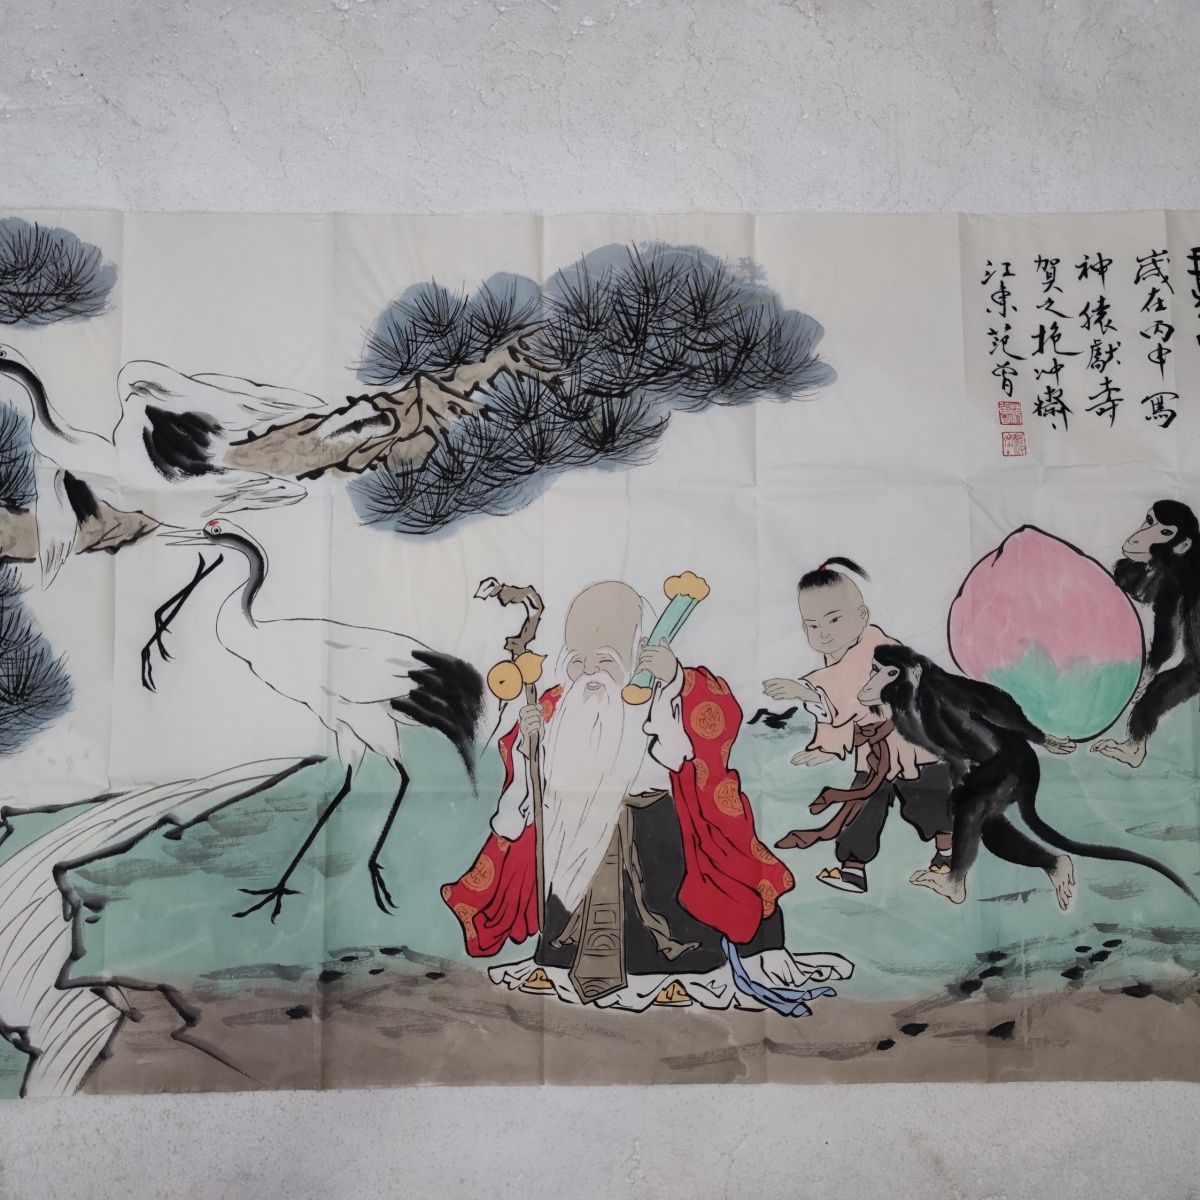 歲在丙申寫
神猿獻壽
賀之抱冲齋
江東范曾